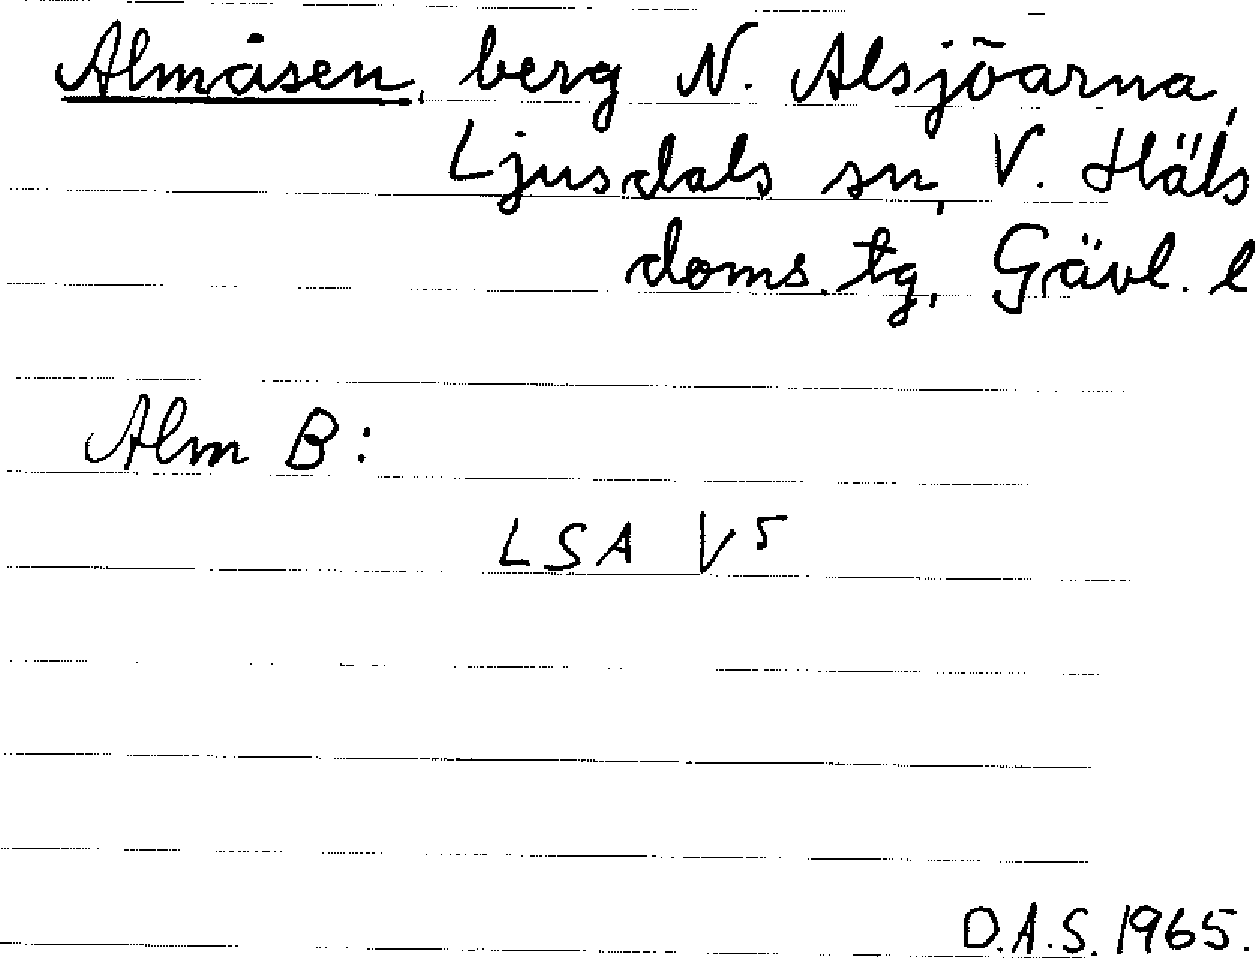 Almåsen, berg N. Alsjöarna,
Ljusdals sn, V. Häls
doms. tg, Gävl. l
Alm B:
LSA V 5
D.A.S. 1965.